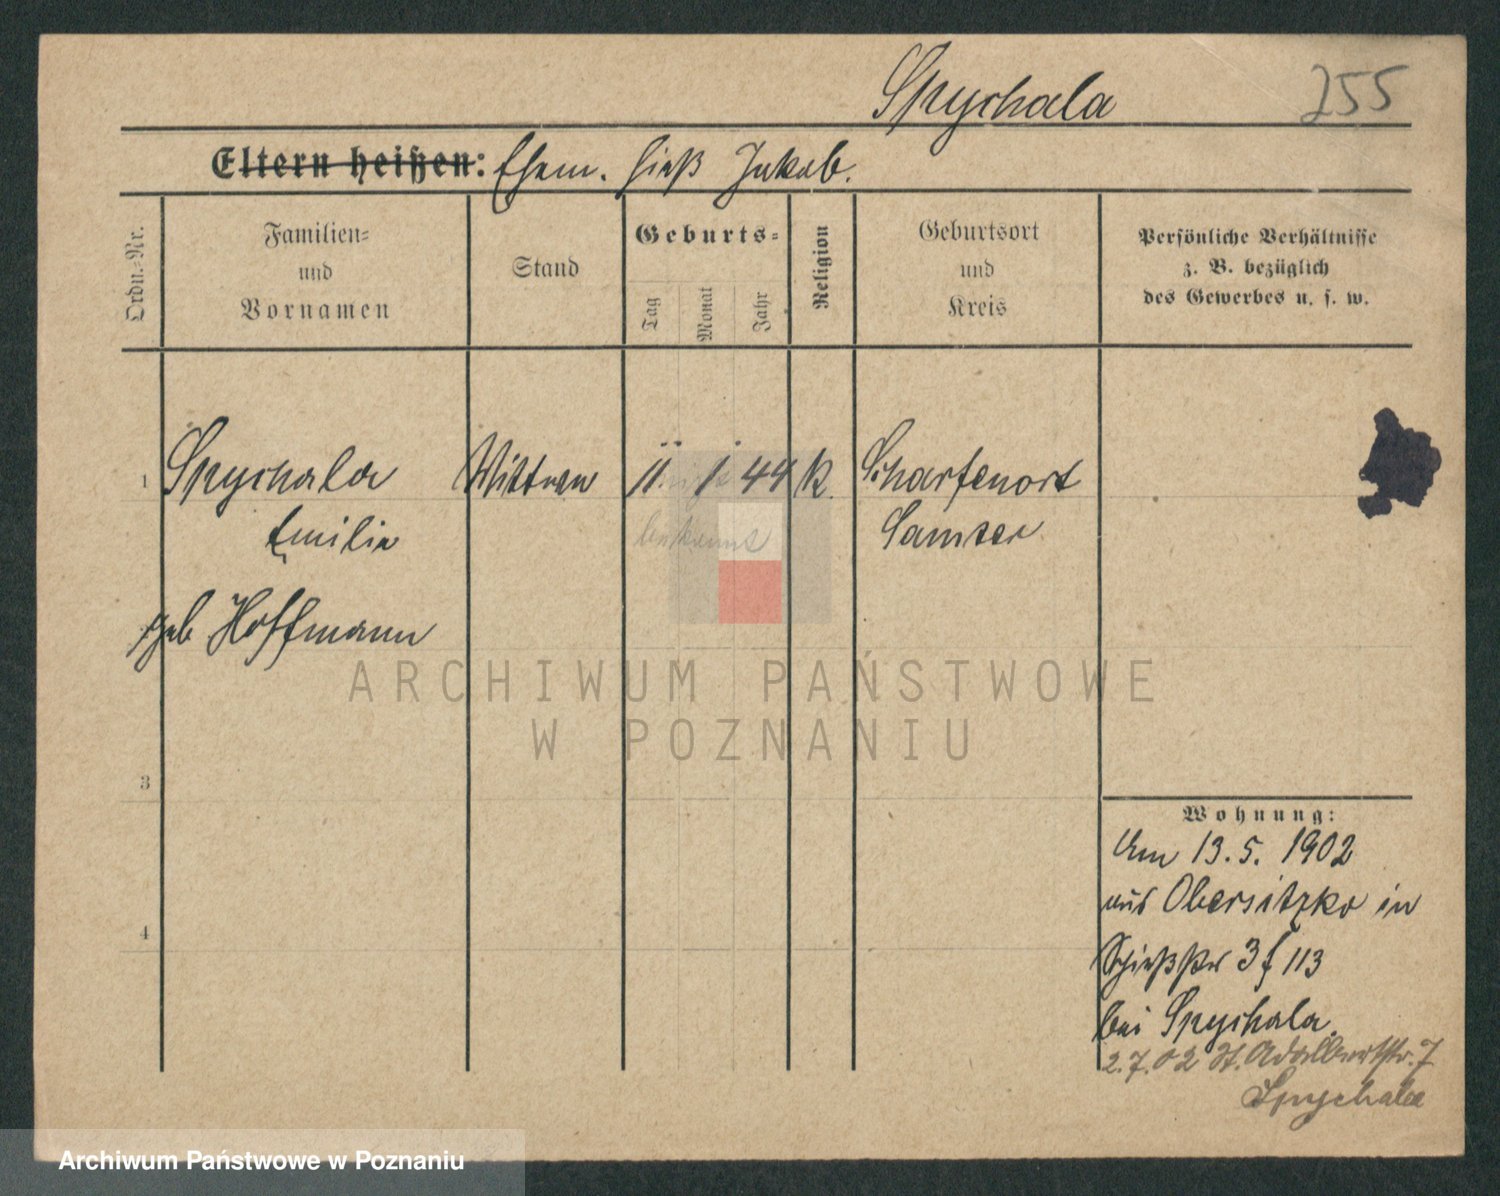 Spychala 255
Eltern heißen: Ehem. hieß Jakob.
Ordn.-Nr.
Familien-
und
Vornamen
Stand
Geburts-
Tag
Monat
Jahr
Religion
Geburtsort
und
Kreis
Persönliche Verhältnisse
z. B. bezüglich
des Gewerbes u. s. w.
1 Spychala Wittwe 11 1 44 K. Scharfenort
Emilie bekannt Samter
geb Hoffmann
ARCHIWUM PAŃSTWOWE
W POZNANIU
3
4
Wohnung:
Am 13.5. 1902
aus Obersitzko in
Schießstr 3 f 113
bei Spychala.
2.7.02 St. Adalbertstr. 7
Spychala
Archiwum Państwowe w Poznaniu